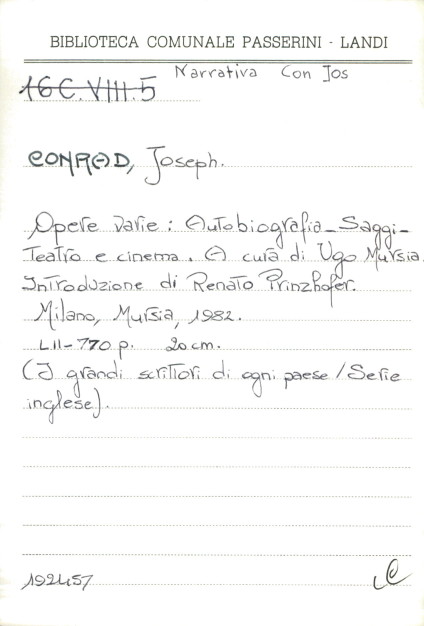 BIBLIOTECA COMUNALE PASSERINI - LANDI
Narrativa Con Jos
16C.VIII.5
CONRAD, Joseph.
Opere varie: Autobiografia_Saggi_
Teatro e cinema. A cura di Ugo Mursia.
Introduzione di Renato Prinzhofer.
Milano, Mursia, 1982.
LII-770 p. 20 cm.
(I grandi scrittori di ogni paese / Serie
inglese).
192457